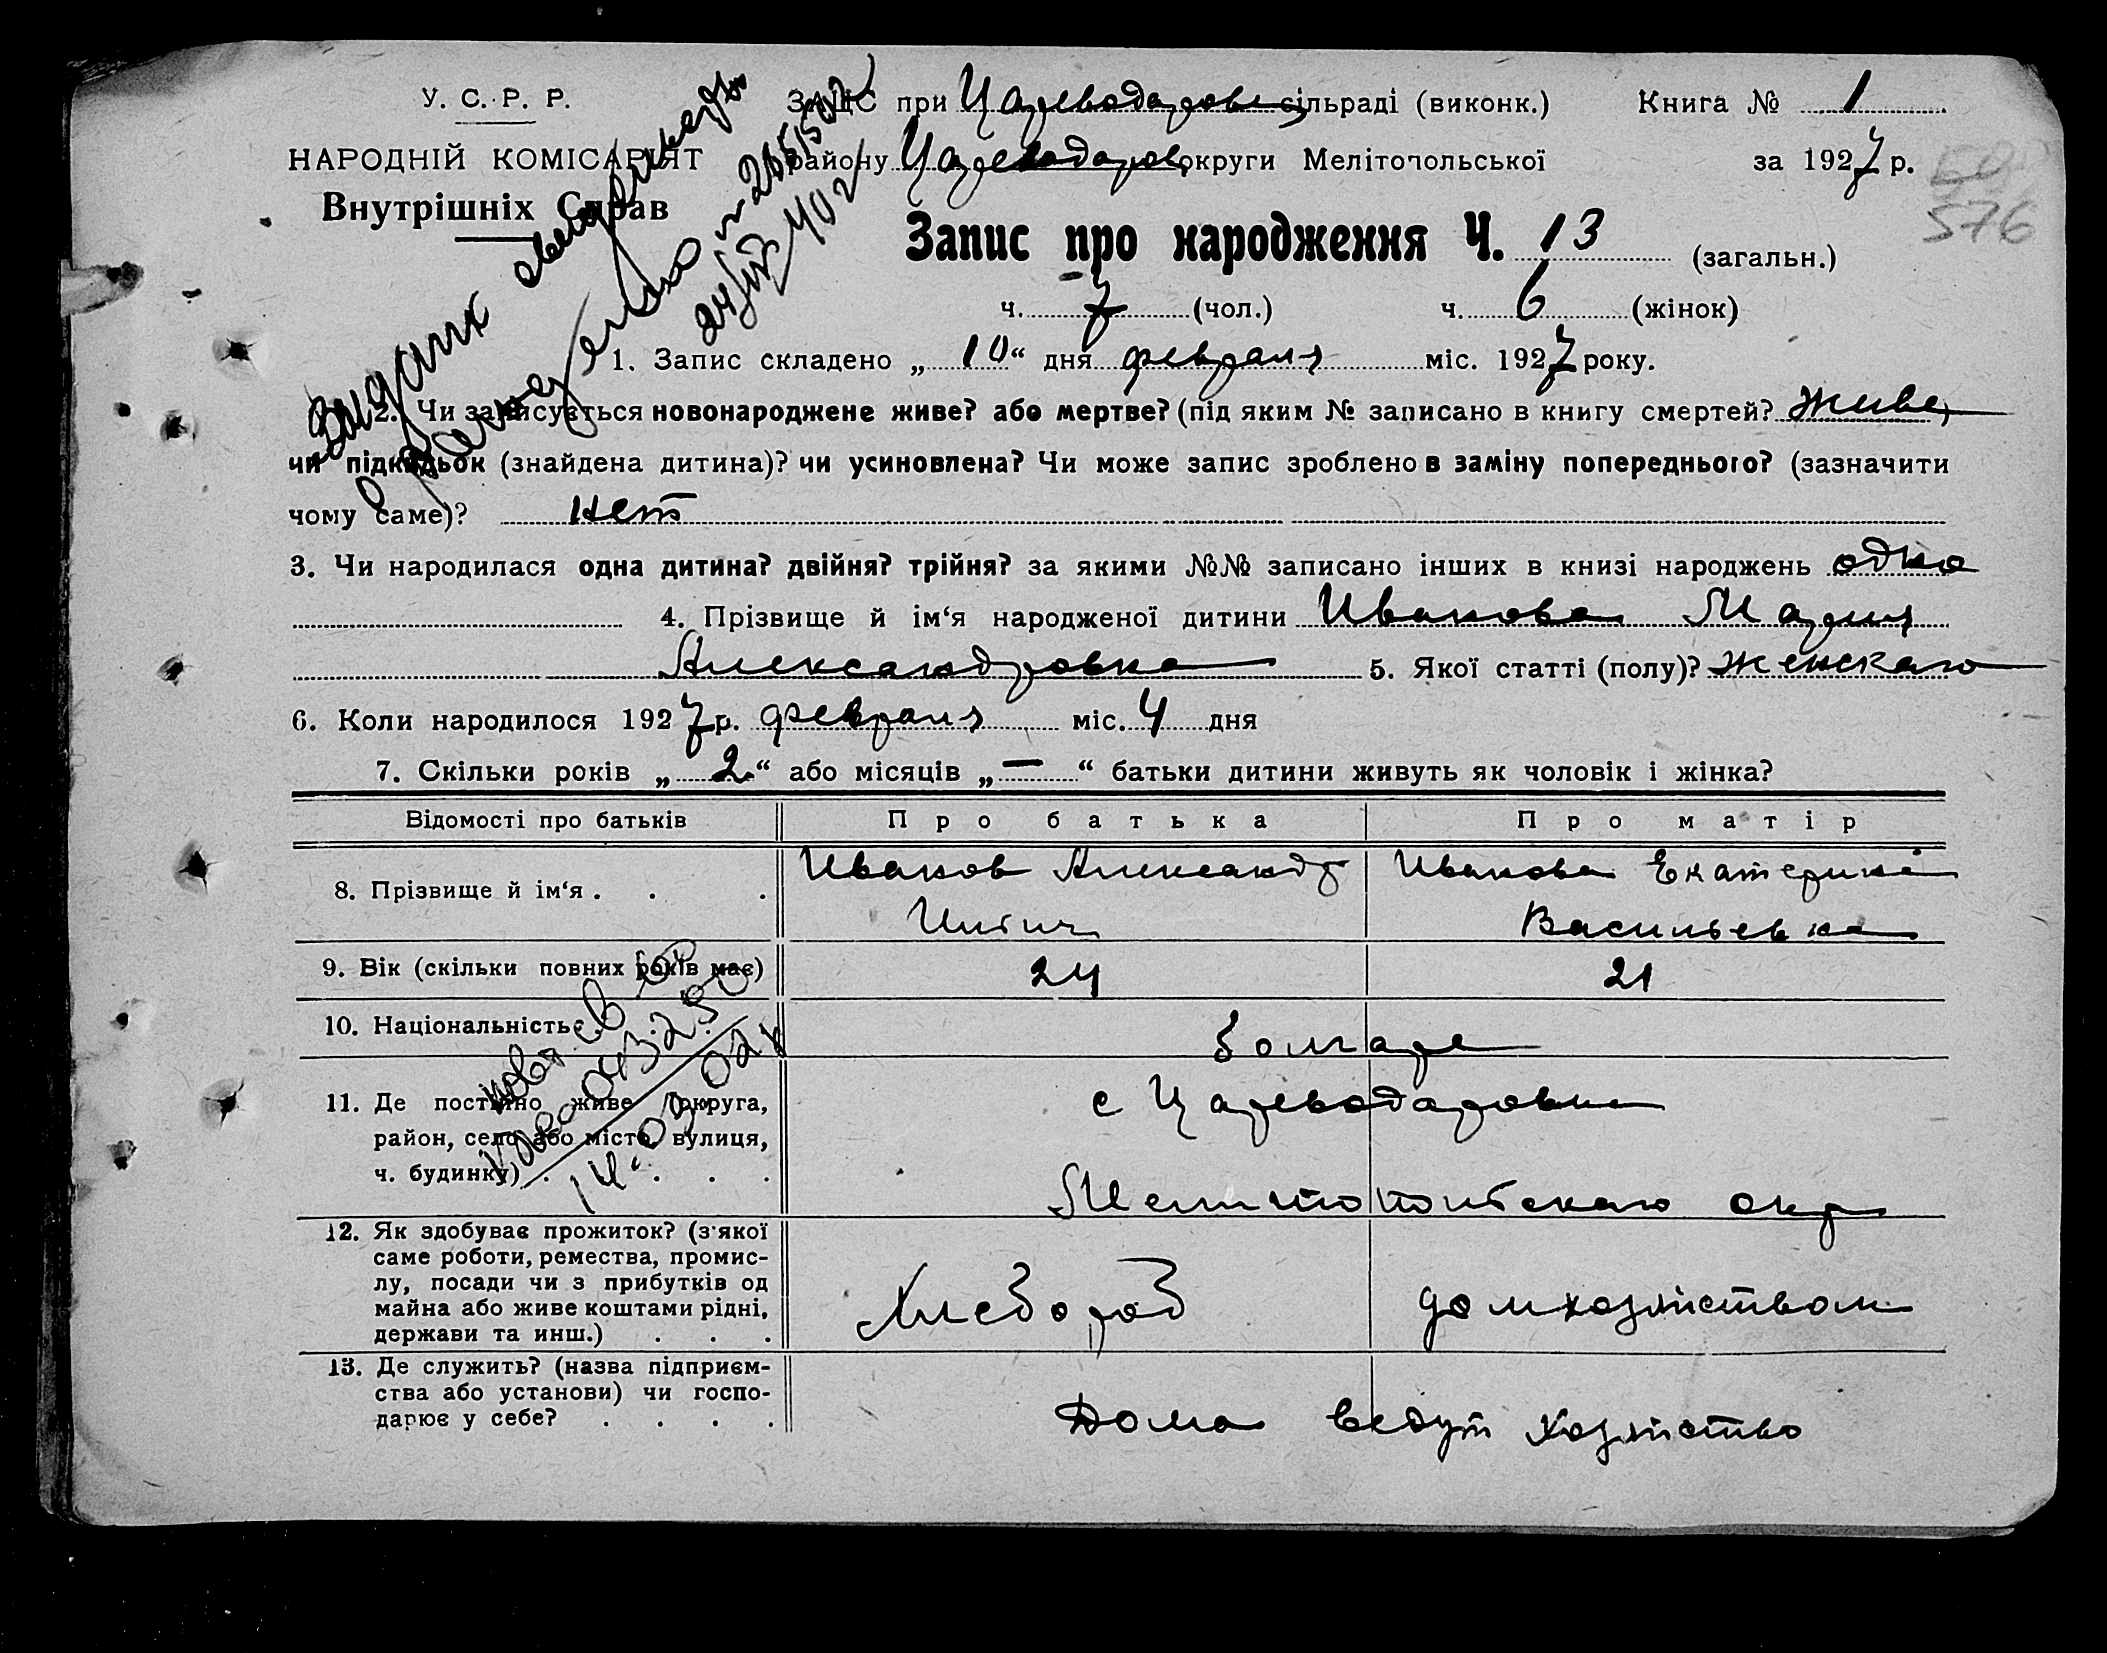 У. С. Р. Р.
НАРОДНІЙ КОМІСАРІЯТ
Внутрішніх Справ
ЗАГС при Царводаровс сільраді (виконк.) Книга № 1
району Цареводаров округи Мелітопольської за 1927 р.
576
Запис про народження Ч. 13 (загальн.)
ч. 7 (чол.) ч. 6 (жінок)
1. Запис складено „ 10 “ дня февраля міс. 1927 року.
2. Чи записується новонароджене живе? або мертве? (під яким № записано в книгу смертей? живе)
чи підкидьок (знайдена дитина)? чи усиновлена? Чи може запис зроблено в заміну попереднього? (зазначити
чому саме)? нет
3. Чи народилася одна дитина? двійня? трійня? за якими №№ записано інших в книзі народжень одна
4. Прізвище й ім‘я народженої дитини Иванова Мария
Александровна 5. Якої статті (полу)? женскаго
6. Коли народилося 1927 р. февраля міс. 4 дня
7. Скільки років „ 2 “ або місяців „ — “ батьки дитини живуть як чоловік і жінка?
Відомості про батьків Про батька Про матір
8. Прізвище й ім‘я . . . Иванов Александр Иванова Екатерина
Васильевна
9. Вік (скільки повних років має) 24 21
10. Національність болгаре
11. Де постійно живе (округа, с Цареводаровка
район, село або місто, вулиця,
ч. будинку) . . . . Мелитопольскаго окр
12. Як здобуває прожиток? (з'якої
саме роботи, ремества, промис-
лу, посади чи з прибутків од
майна або живе коштами рідні, Хлебороб домхозяйством
держави та инш.) . . .
13. Де служить? (назва підприєм-
ства або установи) чи госпо-
дарює у себе? . . . . Дома ведут хозяйство